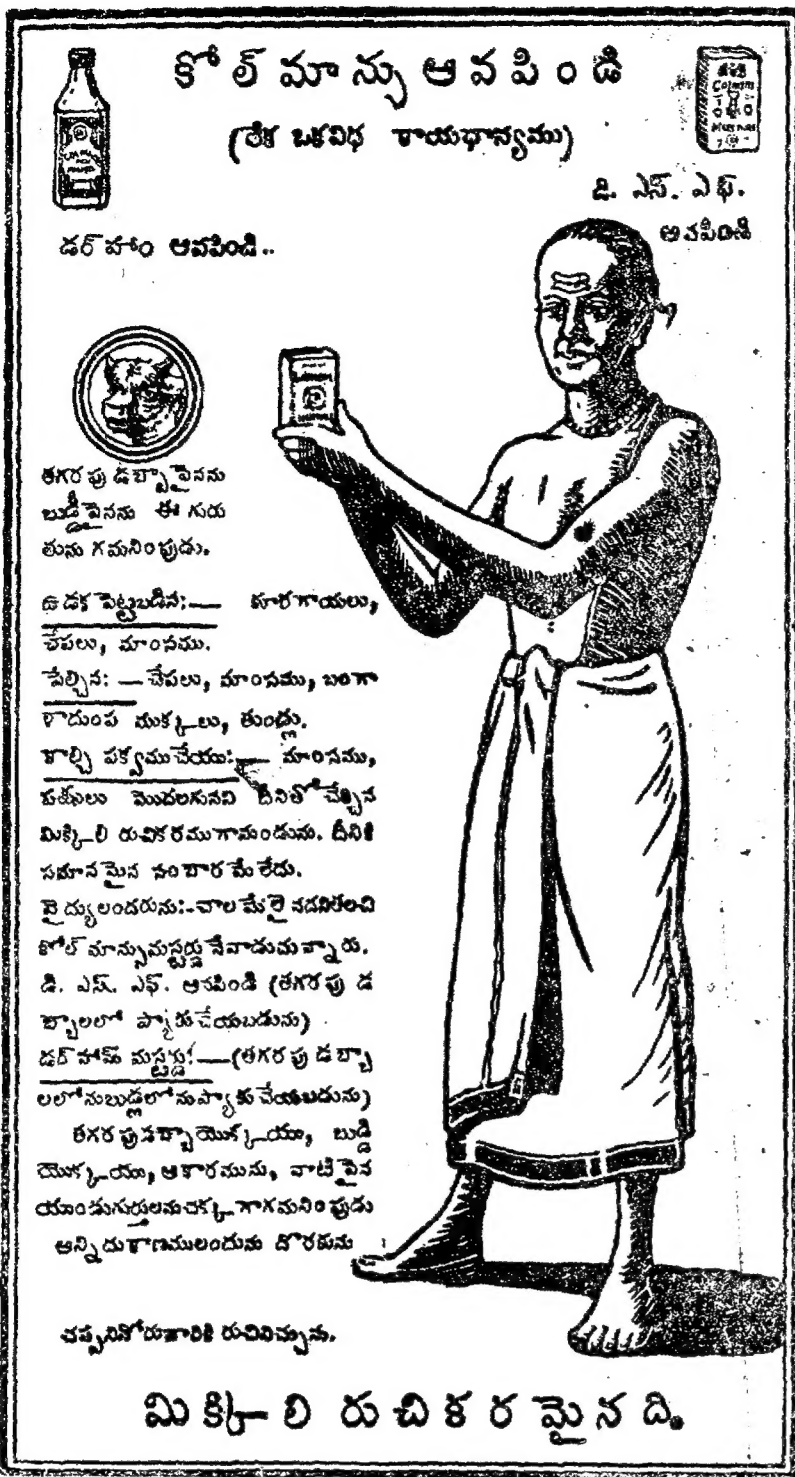 కోల్ మాన్సు ఆవపిండి
(లేక ఒకవిధ కాయధాన్యము)
డి. ఎస్. ఎఫ్.
ఆవపిండి
డర్ హాం ఆవపిండి..
తగరపు డబ్బాపైనను
బుడ్డిపైనను ఈ గురు
తును గమనింపుడు.
ఉడక పెట్టబడిన:— కూరగాయలు,
చేపలు, మాంసము.
పేల్చిన: — చేపలు, మాంసము, బంగా
ళాదుంప ముక్కలు, తుండ్లు.
కాల్చి పక్వముచేయు:— మాంసము,
మొదలగునవి దీనితో చేర్చిన
మిక్కిలి రుచికరముగానుండును. దీనికి
సమానమైన సంబారమే లేదు.
వైద్యులందరును:-చాల మేలైనదనితలచి
కోల్ మాన్సుమస్టర్డు నేవాడుచున్నారు.
డి. ఎస్. ఎఫ్. ఆవపిండి (తగరపు డ
బ్బాలలో ప్యాకుచేయబడును)
డర్ హామ్ మస్టర్డు:—(తగరపు డబ్బా
లలోనుబుడ్లలోనుప్యాకు చేయబడును)
తగరపుడబ్బాయొక్కయు, బుడ్డి
యొక్కయు, ఆకారమును, వాటిపైన
యుండుగుర్తులనుచక్కగాగమనింపుడు
అన్నిదుకాణములందును దొరకును
చప్పనినోరుగారికి రుచినిచ్చును.
మిక్కిలి రుచికరమైనది.